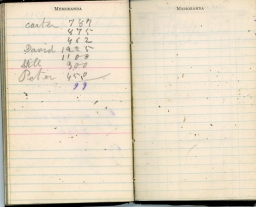 MEMORANDA
carter 787
875
462
David 1225
1108
Will 300
Poter 450
99
MEMORANDA